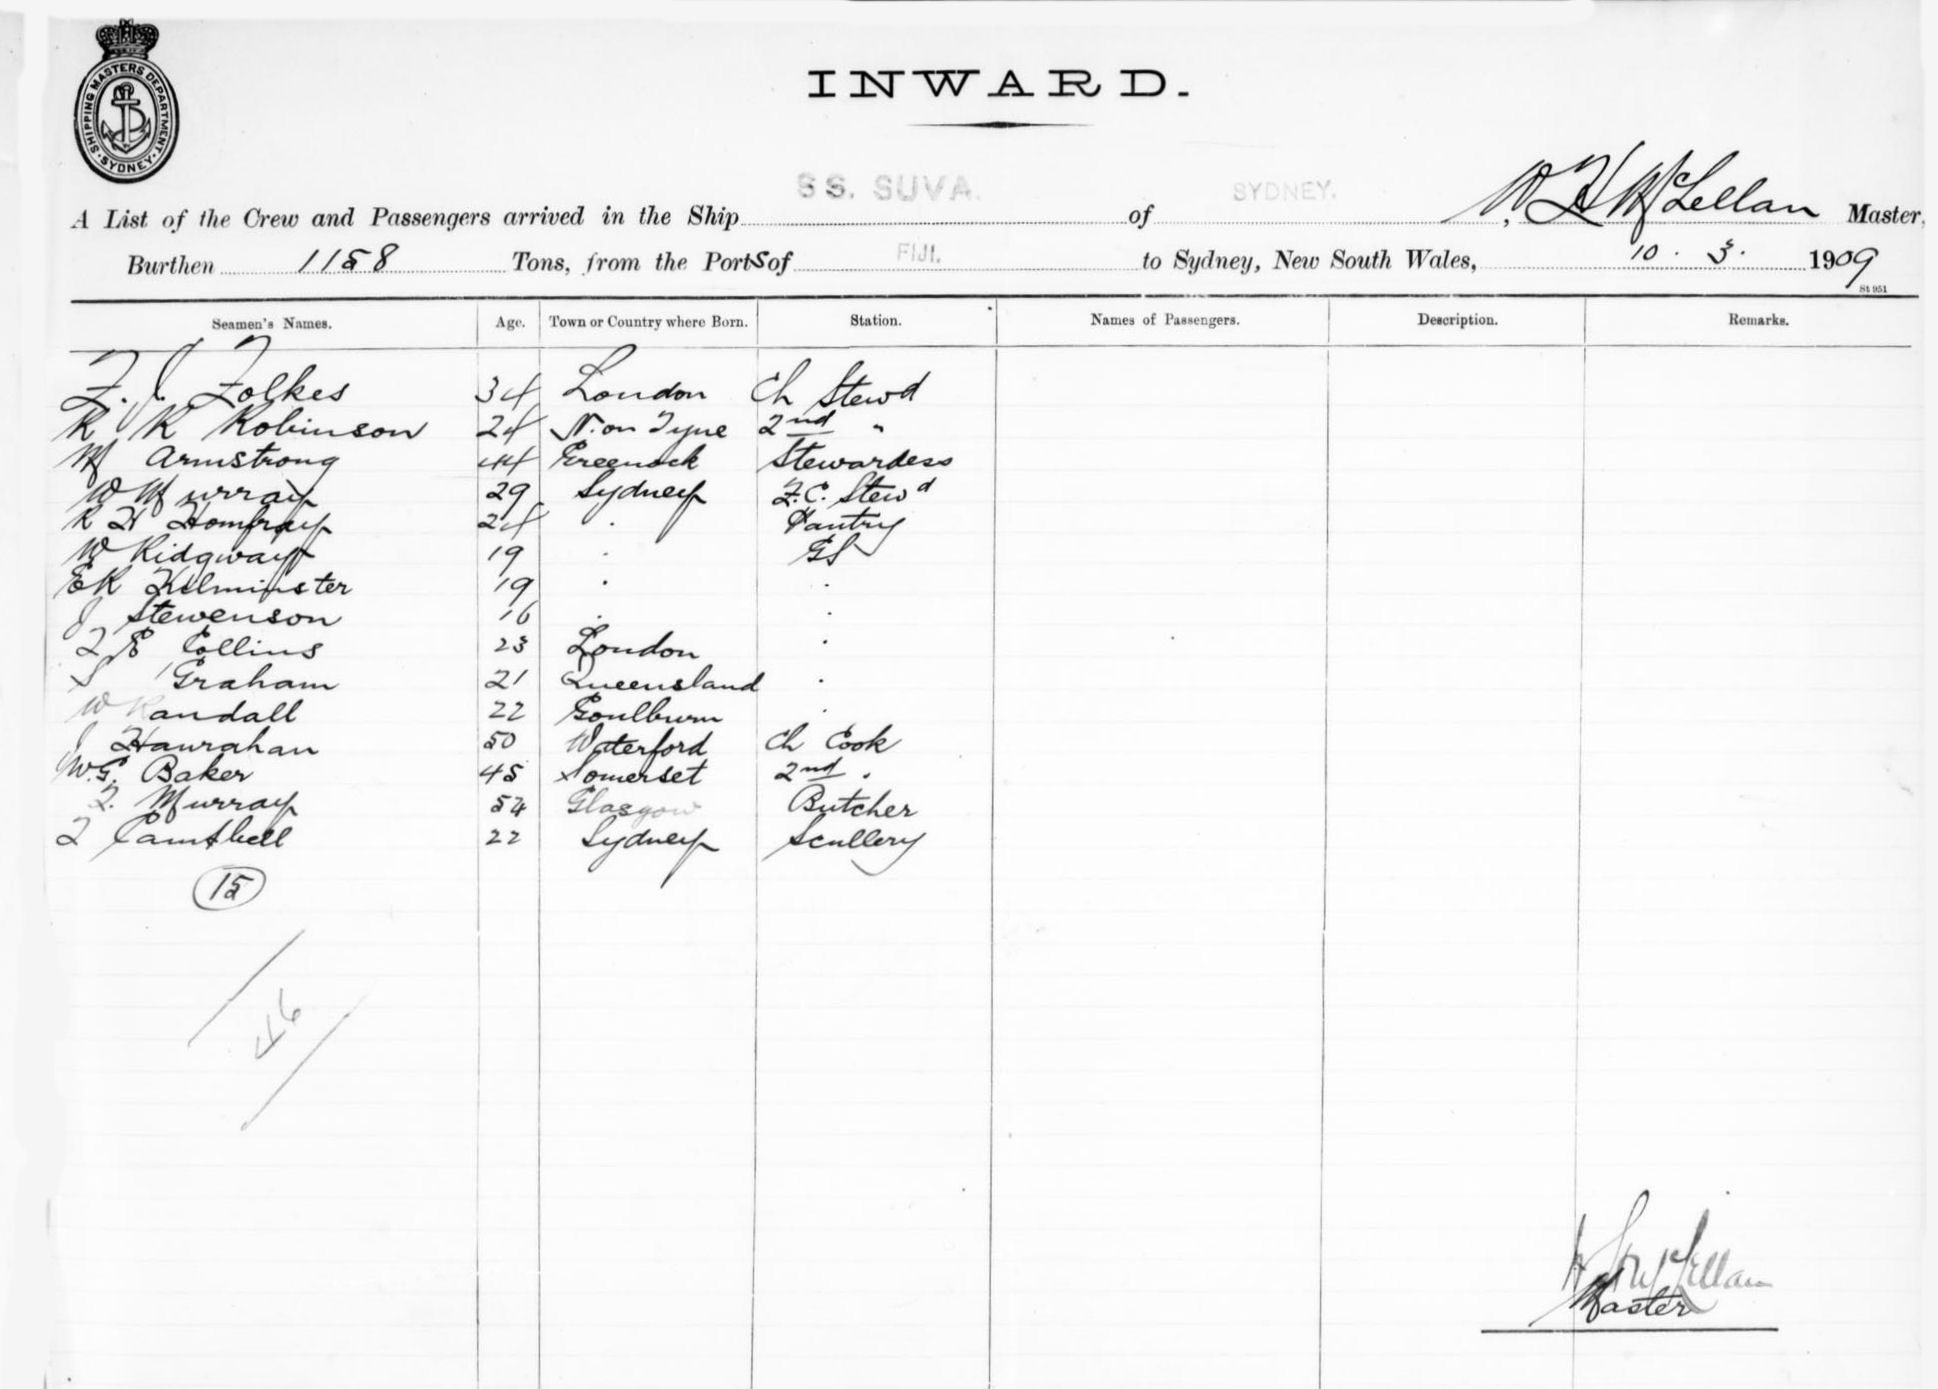 SHIPPING MASTERS DEPARTMENT
SYDNEY
INWARD.
A List of the Crew and Passengers arrived in the Ship SS. SUVA. of SYDNEY. , W H McLellan Master,
Burthen 1158 Tons, from the Ports of FIJI. to Sydney, New South Wales, 10 . 3 . 1909
St 951
Seamen's Names. Age. Town or Country where Born. Station. Names of Passengers. Description. Remarks.
F. J. Folkes 34 London Ch Stewd
R K Robinson 24 N. on Tyne 2nd "
M Armstrong 44 Greenock Stewardess
W Murray 29 Sydney F.C. Stewd
R H Homfray 24 . Pantry
W Ridgway 19 . GS
ER Kilminster 19 . .
J Stewenson 16 . .
F E Collins 23 London .
S Graham 21 Queensland .
W Randall 22 Goulburn .
J Hanrahan 50 Waterford Ch Cook
W.G. Baker 45 Somerset 2nd .
F. Murray 54 Glasgow Butcher
F Campbell 22 Sydney Scullery
15
46
McLellan
Master